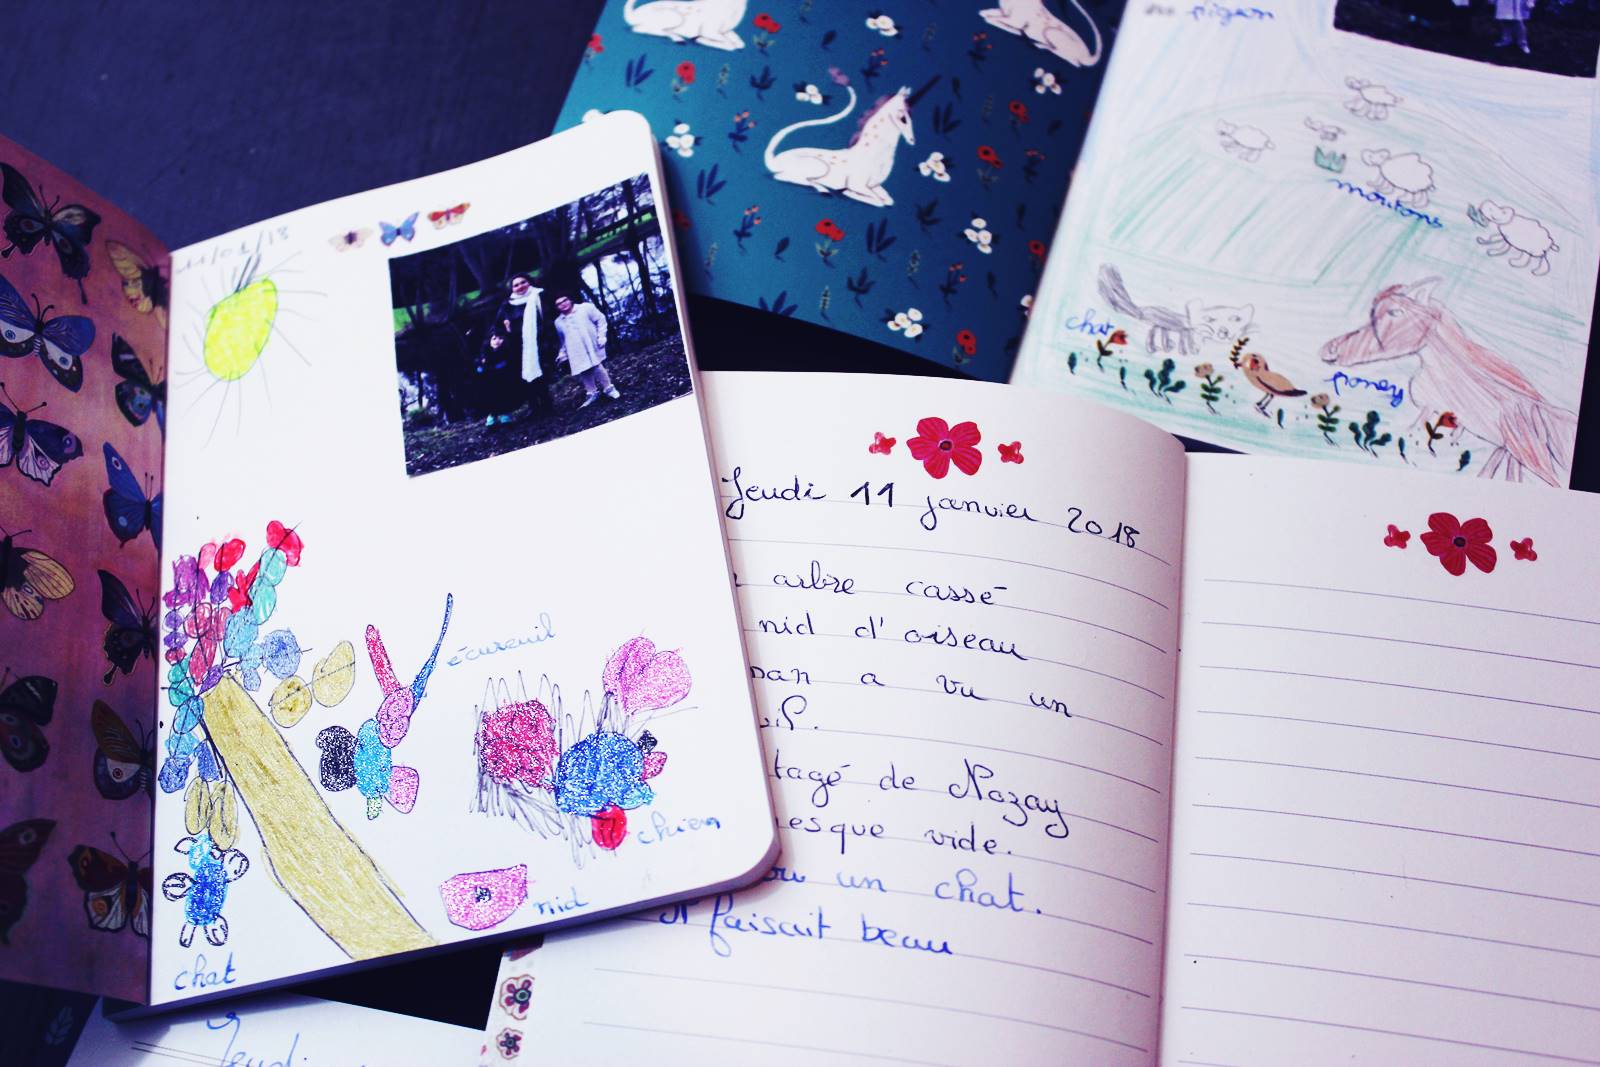 11/01/18
écureuil
chien
nid
chat
pigeon
moutons
chat
poney
Jeudi 11 janvier 2018
arbre cassé
nid d'oiseau
a vu un
tagé de Nozay
esque vide.
un chat.
faisait beau
Jeudi